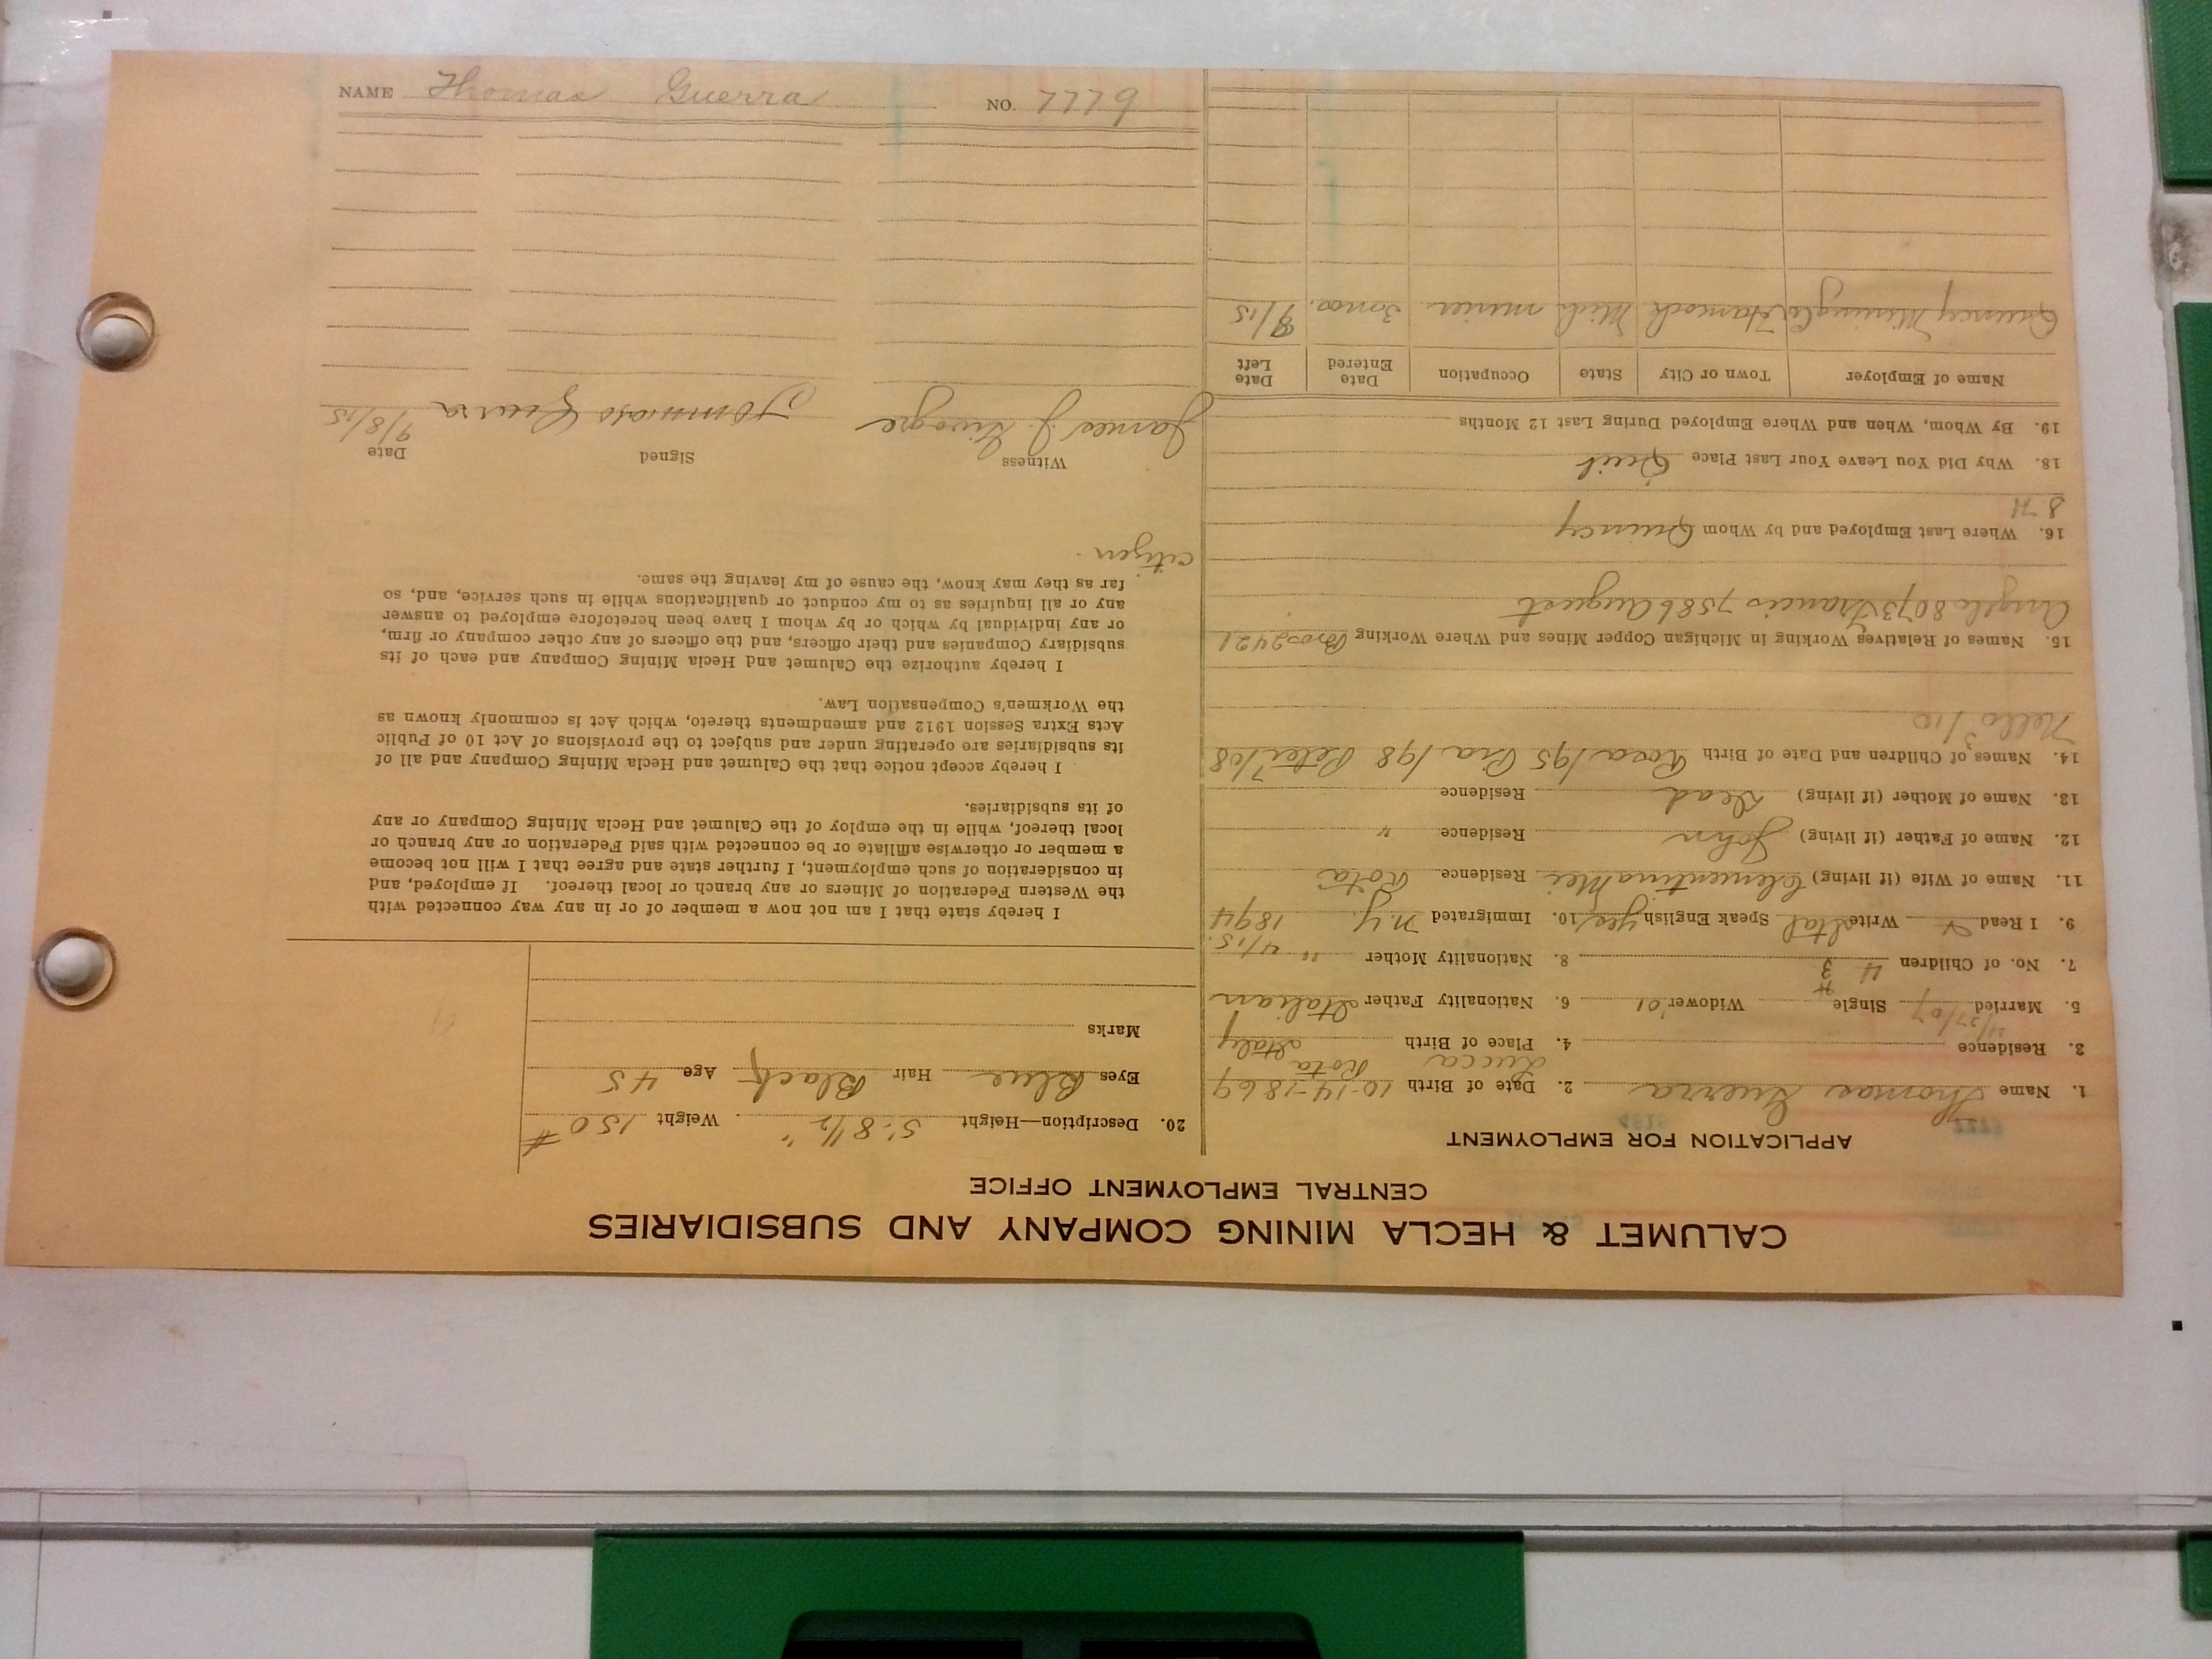 CALUMET & HECLA MINING COMPANY AND SUBSIDIARIES
CENTRAL EMPLOYMENT OFFICE
APPLICATION FOR EMPLOYMENT
1. Name Thomas Guerra 2. Date of Birth 10-14-1869
Lucca Rota
3. Residence 4. Place of Birth Italy
4/27/07
5. Married Single Widower '01 6. Nationality Father Italian
7. No. of Children 4 3 8. Nationality Mother " 4/15.
9. I Read Write Ital Speak English yes 10. Immigrated N.Y. 1894
11. Name of Wife (if living) Clementina Mei Residence Rota
12. Name of Father (if living) John Residence "
13. Name of Mother (if living) Dead Residence
14. Names of Children and Date of Birth Rosa 1/95 Pia 1/98 Peter 7/08
Nello 3/10
15. Names of Relatives Working in Michigan Copper Mines and Where Working Bro 2421
Angelo 8073 Francis 7586 August
16. Where Last Employed and by Whom Quincy
18. Why Did You Leave Your Last Place Quit
19. By Whom, When and Where Employed During Last 12 Months
Name of Employer Town or City State Occupation Date Entered Date Left
Quincy Mining Co Hancock Mich miner 3 mos. 9/15
20. Description—Height 5' 8 1/2" Weight 150 #
Eyes Blue Hair Black Age 45
Marks
I hereby state that I am not now a member of or in any way connected with
the Western Federation of Miners or any branch or local thereof. If employed, and
in consideration of such employment, I further state and agree that I will not become
a member or otherwise affiliate or be connected with said Federation or any branch or
local thereof, while in the employ of the Calumet and Hecla Mining Company or any
of its subsidiaries.
I hereby accept notice that the Calumet and Hecla Mining Company and all of
its subsidiaries are operating under and subject to the provisions of Act 10 of Public
Acts Extra Session 1912 and amendments thereto, which Act is commonly known as
the Workmen's Compensation Law.
I hereby authorize the Calumet and Hecla Mining Company and each of its
subsidiary Companies and their officers, and the officers of any other company or firm,
or any individual by which or by whom I have been heretofore employed to answer
any or all inquiries as to my conduct or qualifications while in such service, and, so
far as they may know, the cause of my leaving the same.
citizen.
Witness Signed Date
James J. Tommaso Guerra 9/8/15
NAME Thomas Guerra NO. 7779